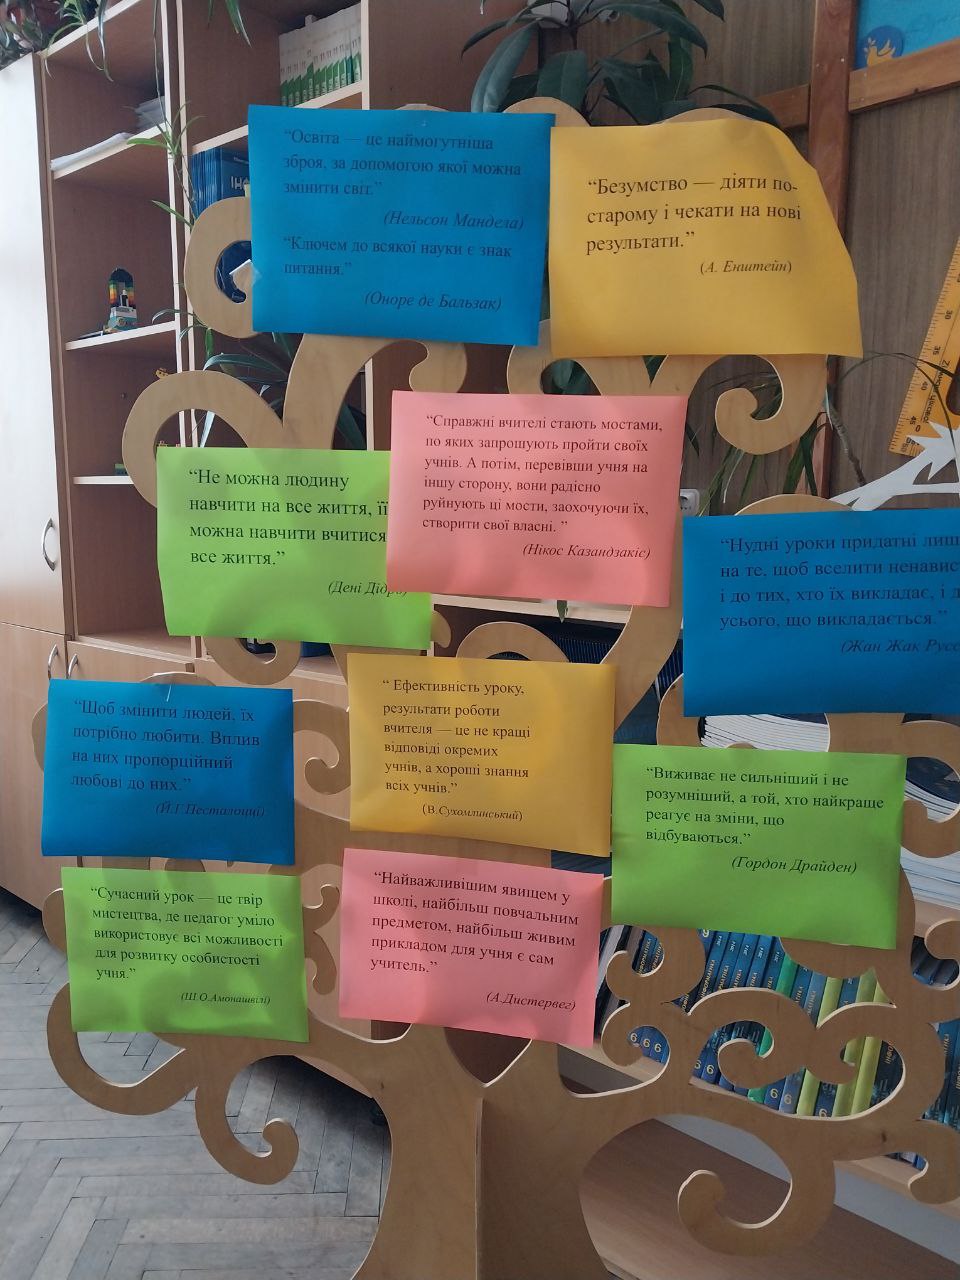 “Освіта — це наймогутніша
зброя, за допомогою якої можна
змінити світ.”
(Нельсон Мандела)
“Ключем до всякої науки є знак
питання.”
(Оноре де Бальзак)
“Безумство — діяти по-
старому і чекати на нові
результати.”
(А. Енштейн)
“Справжні вчителі стають мостами,
по яких запрошують пройти своїх
учнів. А потім, перевівши учня на
іншу сторону, вони радісно
руйнують ці мости, заохочуючи їх,
створити свої власні. ”
(Нікос Казандзакіс)
“Не можна людину
навчити на все життя, її
можна навчити вчитися
все життя.”
(Дені Дідро)
“Нудні уроки придатні лиш
на те, щоб вселити ненавист
і до тих, хто їх викладає, і д
усього, що викладається.”
(Жан Жак Русс
“Щоб змінити людей, їх
потрібно любити. Вплив
на них пропорційний
любові до них.”
(Й.Г.Песталоцці)
“ Ефективність уроку,
результати роботи
вчителя — це не кращі
відповіді окремих
учнів, а хороші знання
всіх учнів.”
(В.Сухомлинський)
“Виживає не сильніший і не
розумніший, а той, хто найкраще
реагує на зміни, що
відбуваються.”
(Гордон Драйден)
“Сучасний урок — це твір
мистецтва, де педагог уміло
використовує всі можливості
для розвитку особистості
учня.”
(Ш.О.Амонашвілі)
“Найважливішим явищем у
школі, найбільш повчальним
предметом, найбільш живим
прикладом для учня є сам
учитель.”
(А.Дистервег)
ІНФОРМАТИКА
6 6 6
6
6 6
6